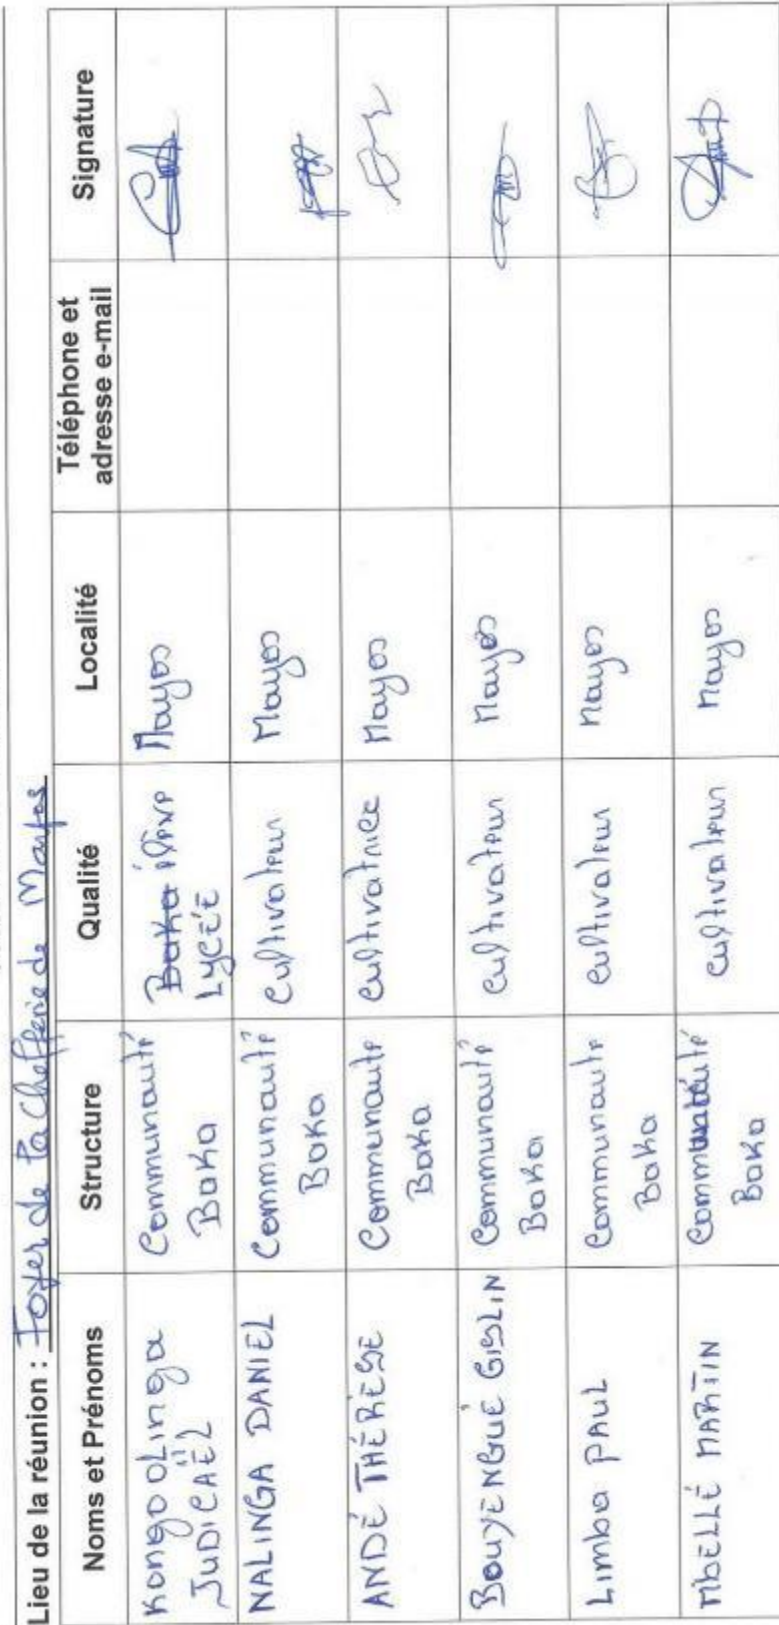 Lieu de la réunion : Foyer de la Chefferie de Mayos
Noms et Prénoms Structure Qualité Localité Téléphone et adresse e-mail Signature
Kongo OLinga JUDICAËL Communauté Baka Baka élève LYCÉE Mayos
NALINGA DANIEL Communauté Baka Cultivateur Mayos
ANDÉ THÉRÈSE Communauté Baka Cultivatrice Mayos
BOUYENGUÉ GISLIN Communauté Baka Cultivateur Mayos
Limba PAUL Communauté Baka Cultivateur Mayos
MBELLÉ MARTIN Communauté Baka Cultivateur Mayos